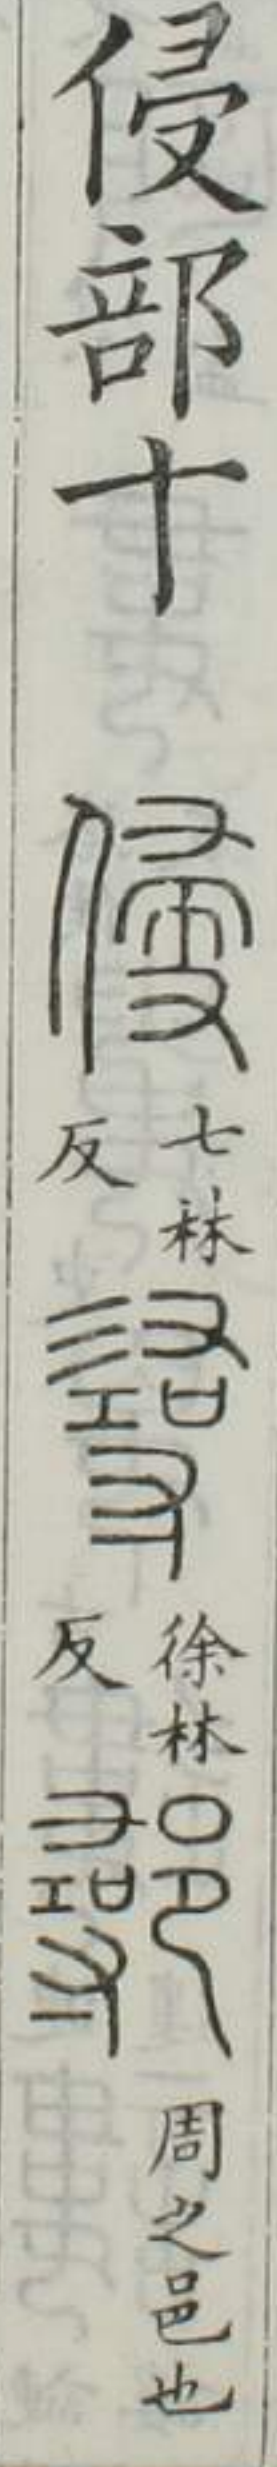 侵部十 侵 七林反 𢒫 徐林反 鄩 周之邑也